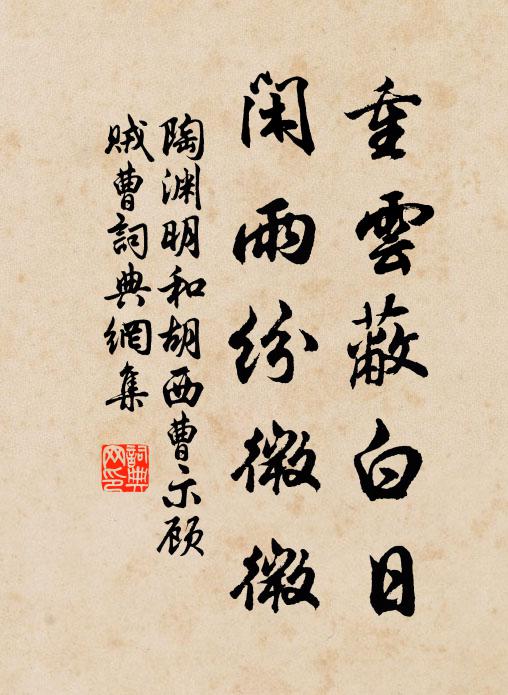 重雲蔽白日
閑雨紛微微
陶渊明和胡西曹示顾
贼曹詞典網集
詞典
网印